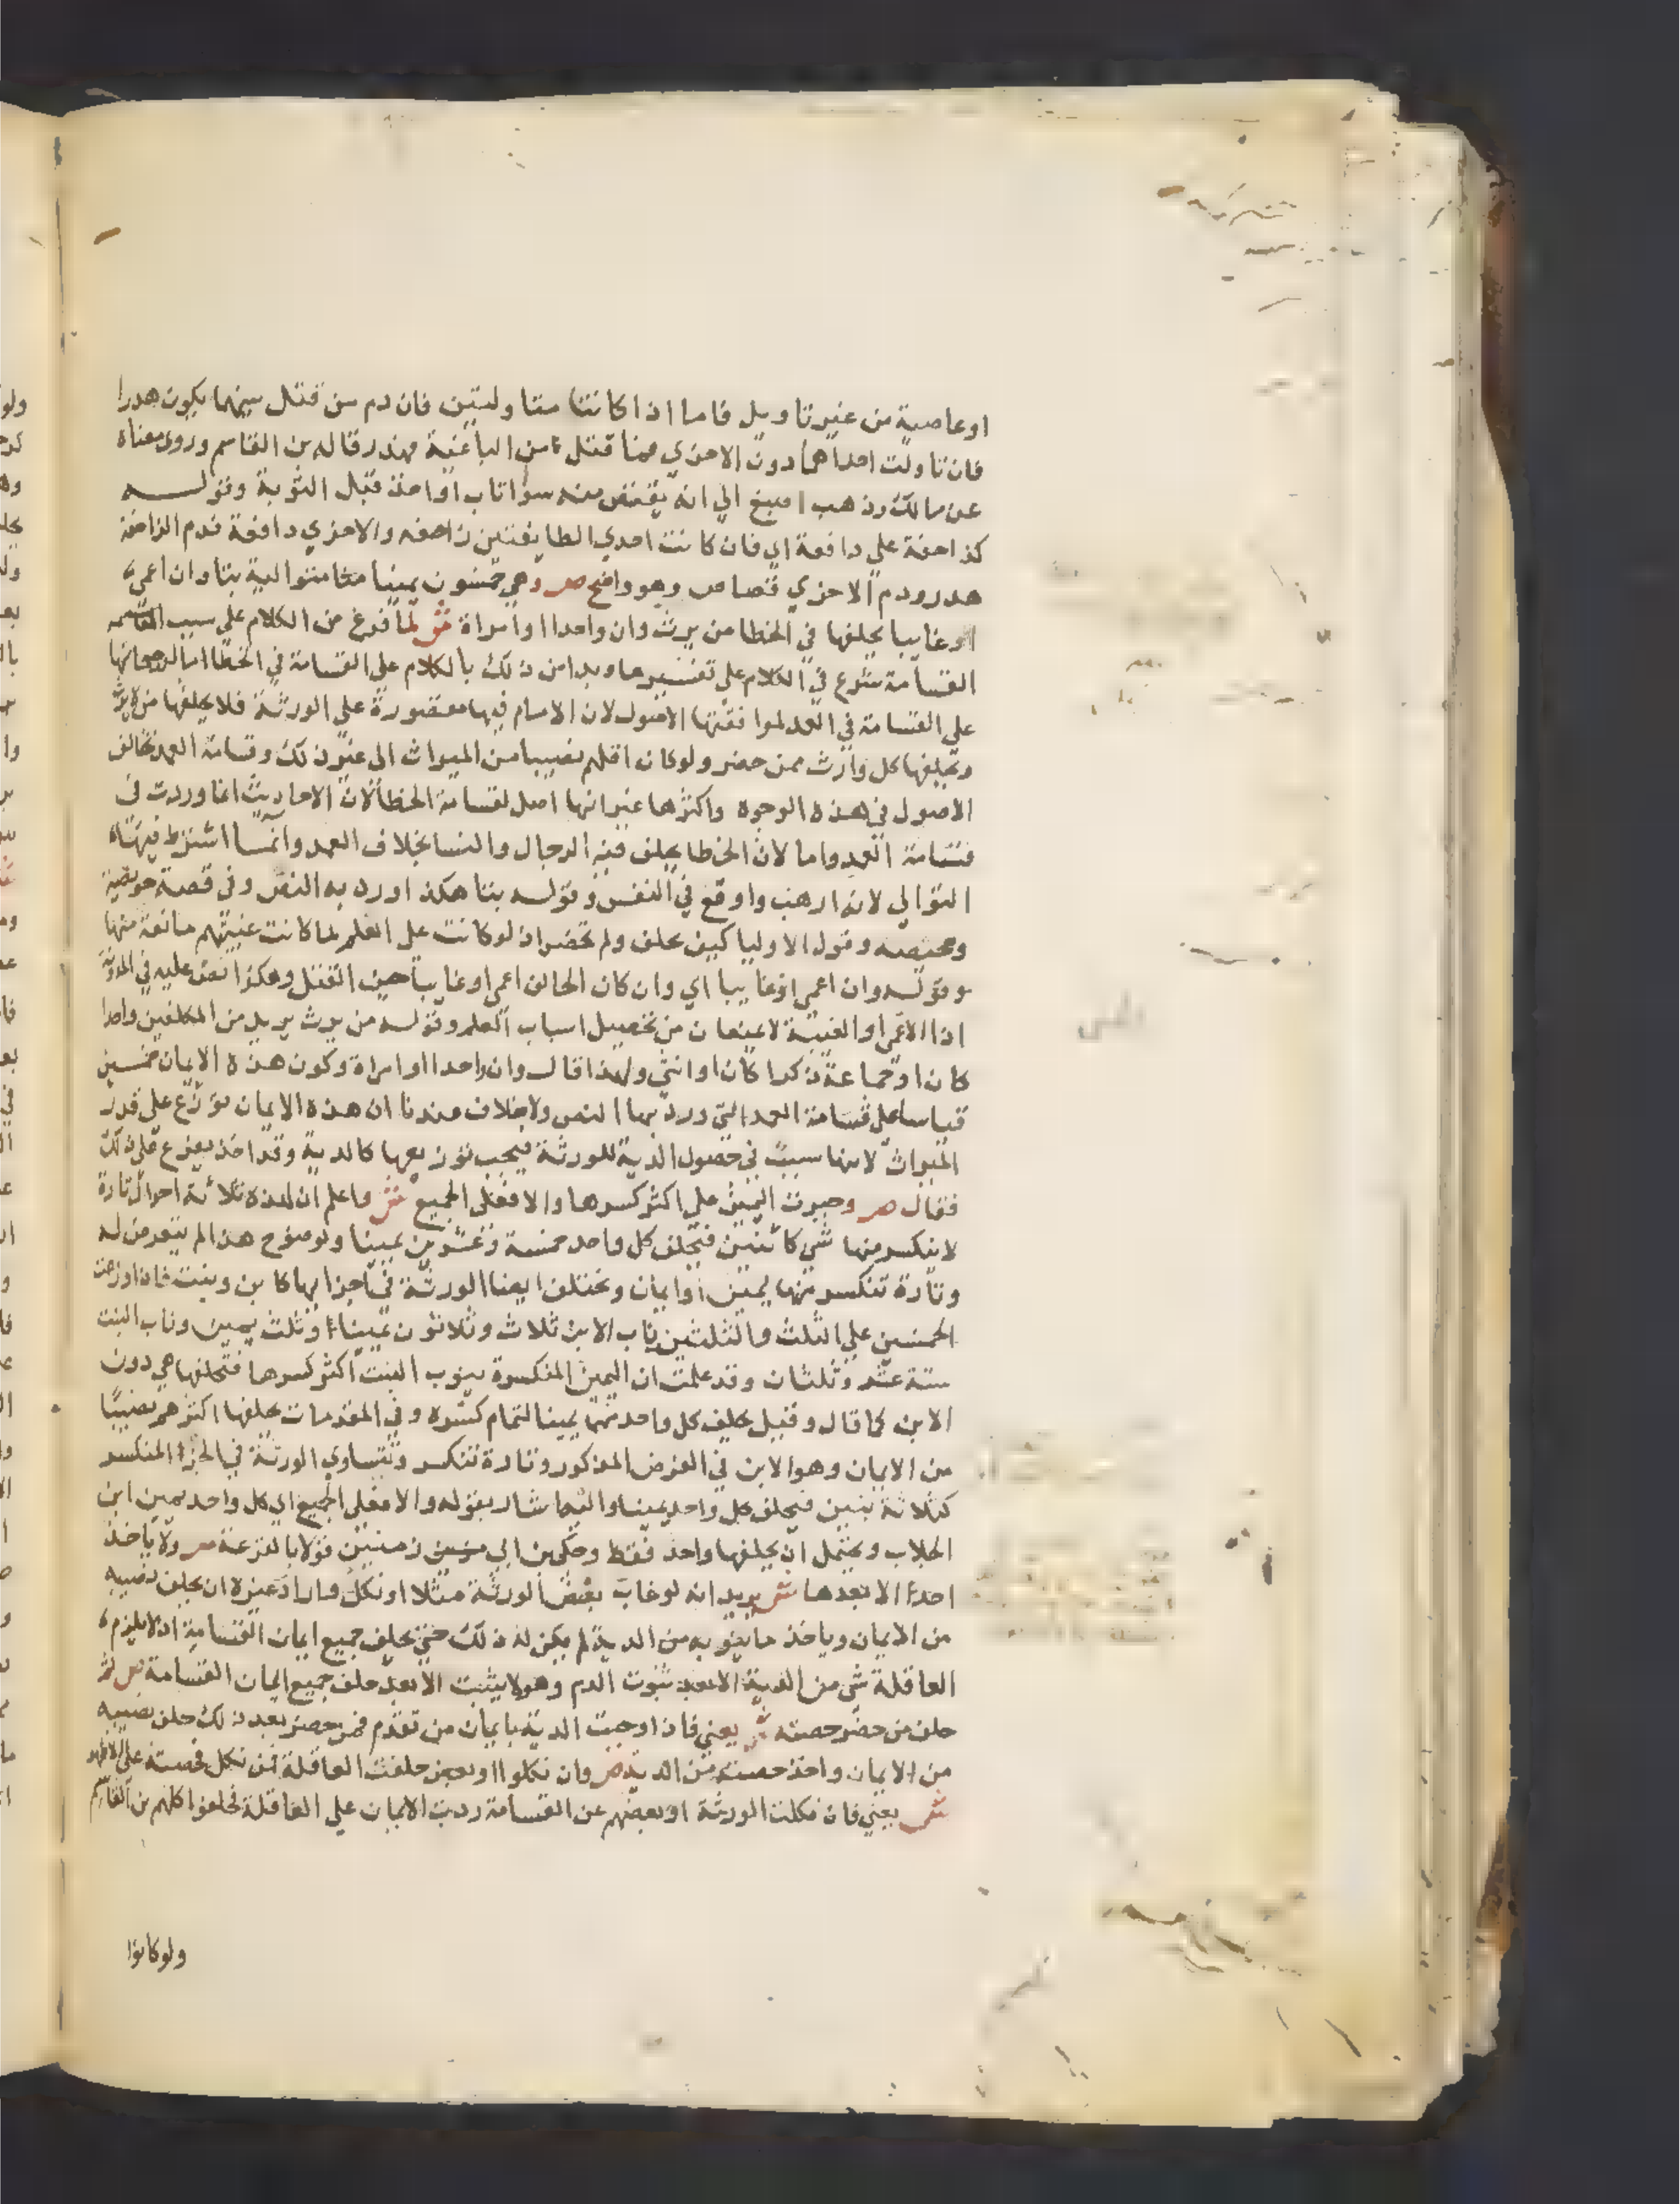 اوعاصية من غير تاويل فاما اذا كانتا متاولتين فان دم من قتل بينهما يكون هدرا
فان تاولت احداهما دون الاخري فمن قتل من الباغية فهدر قاله بن القاسم وروي معناه
عن مالك وذهب اصبغ الي انه يقتص منه سوا تاب او اخذ قبل التوبة وقولــه
كزاحفة علي دافعة اي فان كانت احدي الطايفتين زاحفه والاخري دافعة فدم الزاحفة
هدر ودم الاخري قصاص وهو واضح ص وهي خمسون يمينا متوالية بتا وان اعمي
او غايبا يحلفها في الخطا من يرث وان واحدا او امراة ش لما فرغ من الكلام علي سبب
القسامة شرع في الكلام علي تفسيرها وبدا من ذلك بالكلام علي القسامة في الخطا
علي القسامة في العمد لموافقتها الاصول لان الامام فيها مقصورة علي الورثة فلا يحلفها من لا يرث
ويحلفها كل وارث ممن حضر ولو كان اقلهم نصيبا من الميراث الي غير ذلك وقسامة العمد تخالف
الاصول في هذه الوجوه واكثرها غير انها اصل لقسامة الخطا لان الاحاديث انما وردت في
قسامة العمد واما لان الخطا يحلف فيه الرجال والنسا بخلاف العمد وانما اشترط فيها
التوالي لانه ارهب واوقع في النفس وقولــه بتا هكذا ورد به النص وفي قصة حويصة
ومحيصه وقول الاوليا كيف نحلف ولم نحضر اذ لو كانت علي العلم لما كانت غيبتهم مانعة منها
وقولــه وان اعمي او غايبا اي وان كان الحالف اعمي او غايبا حين القتل وهكذا نص عليه في المدونة
اذ الاعمي او الغيبة لا يمنعان من تحصيل اسباب العلم وقولــه من يرث يريد من المكلفين واحدا
كان او جماعة ذكرا كان او انثي ولهذا قال وان واحدا او امراة وكون هذه الايمان خمسين
قياسا علي قسامة العمد التي ورد بها النص ولا خلاف عندنا ان هذه الايمان توزع علي قدر
الميراث لانها سبب في حصول الدية للورثة فيجب توزيعها كالدية وقد اخذ يفرع علي ذلك
فقال ص وجبرت اليمين علي اكثر كسرها والا فعلي الجميع ش واعلم ان لهذه ثلاثة احوال تارة
لا ينكسر منها شي كاثنين فيحلف كل واحد خمسة وعشرين يمينا ولوضوح هذا لم يتعرض له
وتارة تنكسر منها يمين او ايمان وتختلف ايضا الورثة في اجزايها كابن وبنت فاذا وزعت
الخمسين علي الثلث والثلثين ناب الابن ثلاث وثلاثون يمينا وثلث يمين وناب البنت
ستة عشر وثلثان وقد علمت ان اليمين المنكسرة ينوب البنت اكثر كسرها فتحلفها هي دون
الابن كما قال وقيل يحلف كل واحد منهما يمينا لتمام كسره وفي المقدمات يحلفها اكثرهم نصيبا
من الايمان وهو الابن في الفرض المذكور وتارة تنكسر وتتساوي الورثة في الجزء المنكسر
كثلاثة بنين فيحلف كل واحد يمينا واليه اشار بقوله والا فعلي الجميع اي كل واحد يمين ابن
الجلاب ويحتمل ان يحلفها واحد فقط وحكي بن ابي زمنين قولا بالقرعة ص ولا ياخذ
احد الا بعدها ش يريد انه لو غاب بعض الورثة مثلا او نكل واراد غيره ان يحلف نصيبه
من الايمان وياخذ ما ينوبه من الدية لم يكن له ذلك حتي يحلف جميع ايمان القسامة اذ لا يلزم
العاقلة شي من الدية الا بعد ثبوت الدم وهو لا يثبت الا بعد حلف جميع ايمان القسامة ص ثم
حلف من حضر حصته ش يعني فاذا وجبت الدية بايمان من تقدم فمن حضر بعد ذلك حلف نصيبه
من الايمان واخذ حصته من الدية ص وان نكلوا او بعض حلفت العاقلة فمن نكل فحصته علي الاظهر
ش يعني فان نكلت الورثة او بعضهم عن القسامة ردت الايمان علي العاقلة فحلفوا كلهم بن القاسم
ولو كانوا